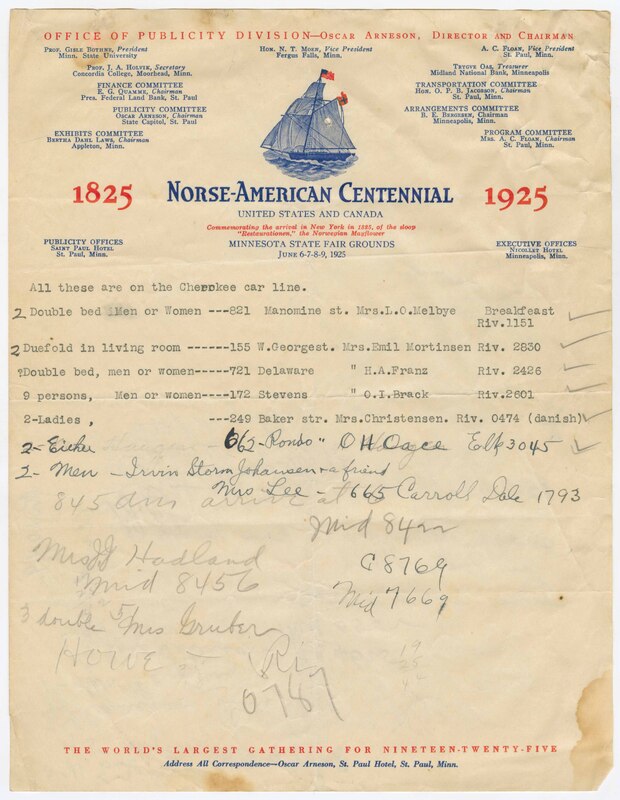 OFFICE OF PUBLICITY DIVISION—OSCAR ARNESON, DIRECTOR AND CHAIRMAN
PROF. GISLE BOTHNE, President
Minn. State University
HON. N. T. MOEN, Vice President
Fergus Falls, Minn.
A. C. FLOAN, Vice President
St. Paul, Minn.
PROF. J. A. HOLVIK, Secretary
Concordia College, Moorhead, Minn.
TRYGVE OAS, Treasurer
Midland National Bank, Minneapolis
FINANCE COMMITTEE
E. G. QUAMME, Chairman
Pres. Federal Land Bank, St. Paul
TRANSPORTATION COMMITTEE
HON. O. P. B. JACOBSON, Chairman
St. Paul, Minn.
PUBLICITY COMMITTEE
OSCAR ARNESON, Chairman
State Capitol, St. Paul
ARRANGEMENTS COMMITTEE
B. E. BERGESEN, Chairman
Minneapolis, Minn.
EXHIBITS COMMITTEE
BERTHA DAHL LAWS, Chairman
Appleton, Minn.
PROGRAM COMMITTEE
MRS. A. C. FLOAN, Chairman
St. Paul, Minn.
1825 NORSE-AMERICAN CENTENNIAL 1925
UNITED STATES AND CANADA
Commemorating the arrival in New York in 1825, of the sloop
"Restaurationen," the Norwegian Mayflower
PUBLICITY OFFICES
SAINT PAUL HOTEL
St. Paul, Minn.
MINNESOTA STATE FAIR GROUNDS
JUNE 6-7-8-9, 1925
EXECUTIVE OFFICES
NICOLLET HOTEL
Minneapolis, Minn.
All these are on the Cherokee car line.
2 Double bed Men or Women ---821 Manomine st. Mrs.L.O.Melbye Breakfeast
Riv.1151
2 Duefold in living room ------155 W.Georgest. Mrs.Emil Mortinsen Riv. 2830
?Double bed, men or women----721 Delaware " H.A.Franz Riv. 2426
9 persons, Men or women----172 Stevens " O.I.Brack Riv.2601
2-Ladies, ---249 Baker str. Mrs.Christensen. Riv. 0474 (danish)
2- Either 662-Rondo " O H Oace Elk 3045
2- Men - Irvin Storm Johansen & a friend
Mrs Lee - 665 Carroll Dale 1793
845 arrive at
Mid 8422
Mrs Hadland
C8769
Mid 8456
Mid 7669
3 double 5 Mrs Gruber
HOWE - Riv
0787
19
25
44
THE WORLD'S LARGEST GATHERING FOR NINETEEN-TWENTY-FIVE
Address All Correspondence—Oscar Arneson, St. Paul Hotel, St. Paul, Minn.